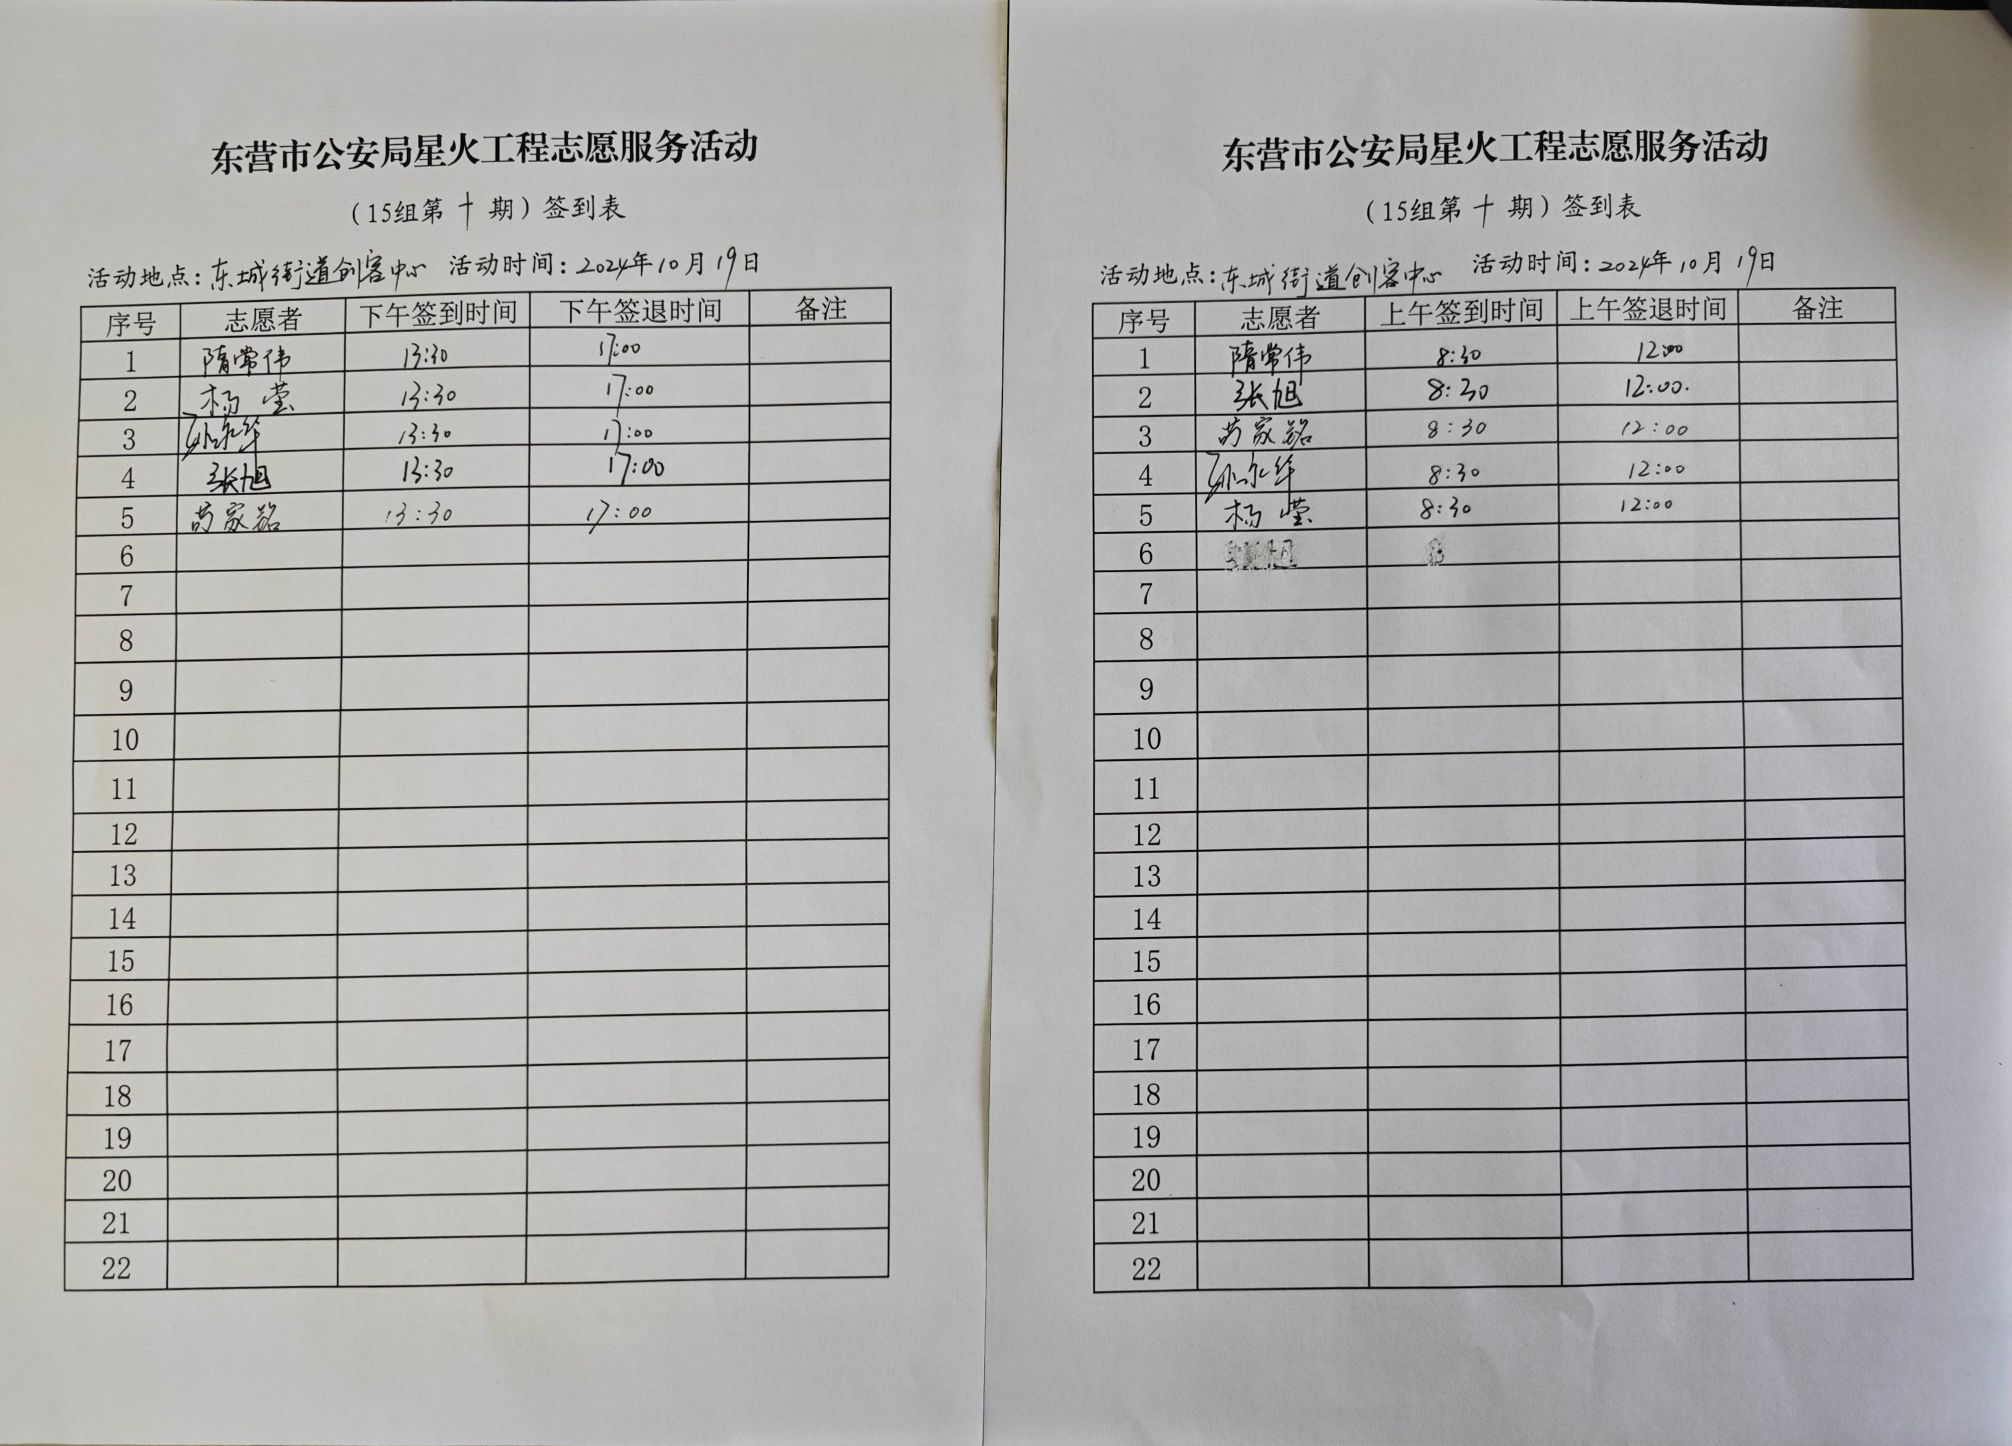 东营市公安局星火工程志愿服务活动
（15组第 十 期）签到表
活动地点：东城街道创客中心 活动时间：2024年10月19日
序号 志愿者 下午签到时间 下午签退时间 备注
1 隋常伟 13:30 17:00
2 杨莹 13:30 17:00
3 孙永华 13:30 17:00
4 张旭 13:30 17:00
5 苗家铭 13:30 17:00
6
7
8
9
10
11
12
13
14
15
16
17
18
19
20
21
22
东营市公安局星火工程志愿服务活动
（15组第 十 期）签到表
活动地点：东城街道创客中心 活动时间：2024年10月19日
序号 志愿者 上午签到时间 上午签退时间 备注
1 隋常伟 8:30 12:00
2 张旭 8:30 12:00.
3 苗家铭 8:30 12:00
4 孙永华 8:30 12:00
5 杨莹 8:30 12:00
6
7
8
9
10
11
12
13
14
15
16
17
18
19
20
21
22